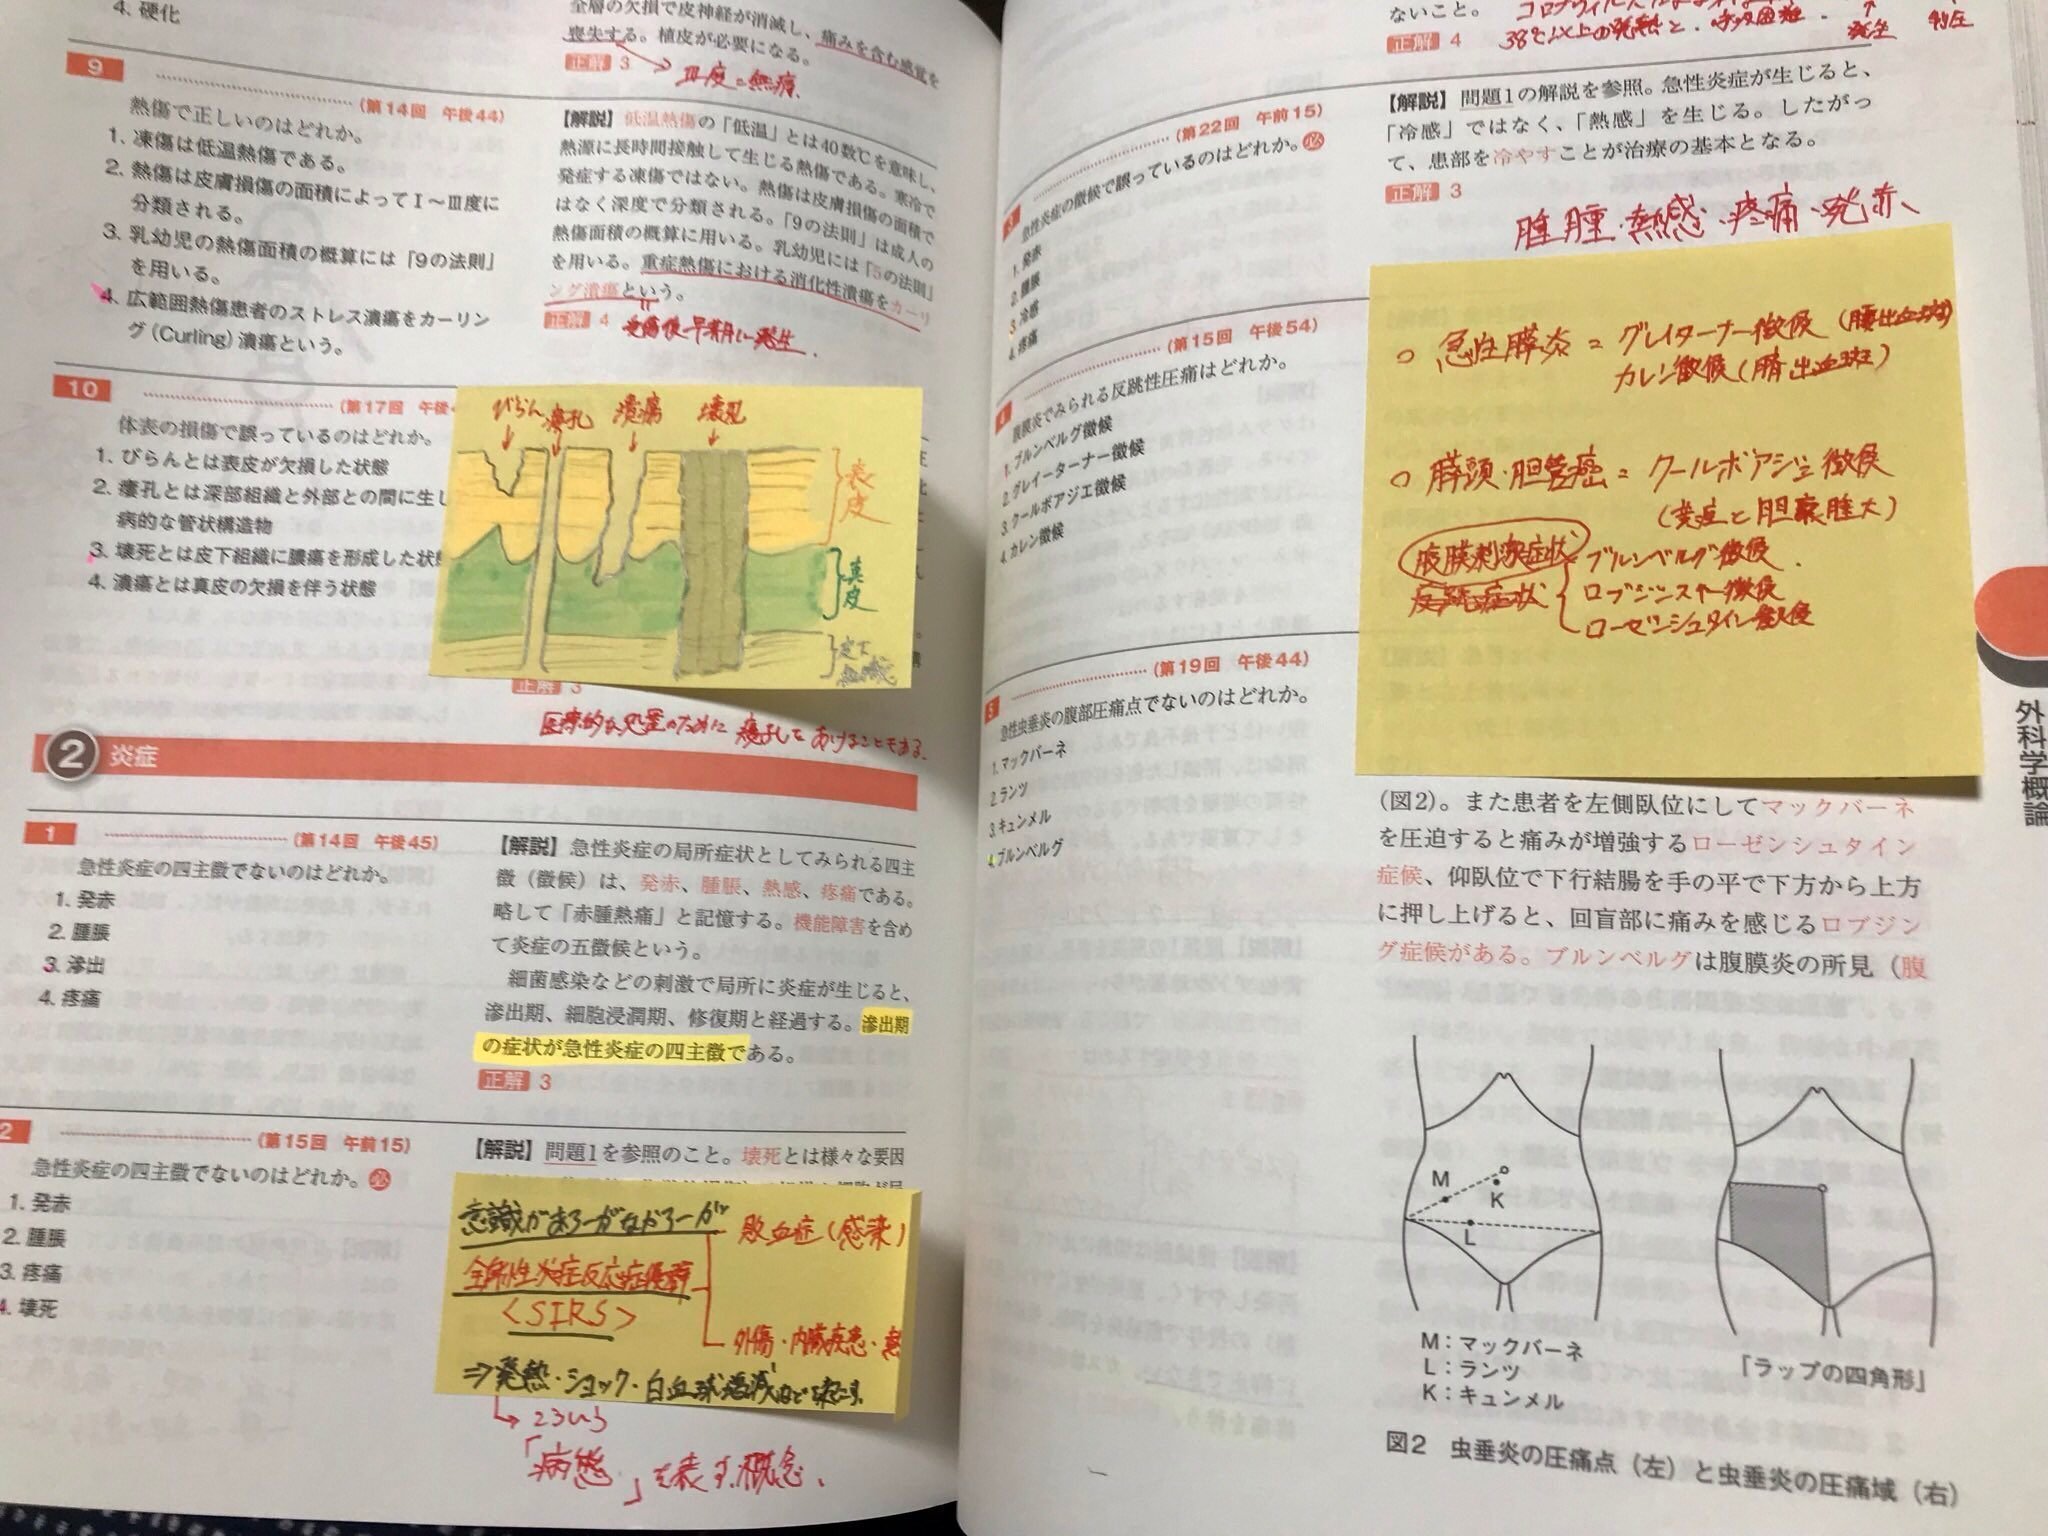 4. 硬化
全層の欠損で皮神経が消滅し、痛みを含む感覚を
喪失する。植皮が必要になる。
正解 3
Ⅲ度=無痛
9
(第14回 午後44)
熱傷で正しいのはどれか。
1. 凍傷は低温熱傷である。
2. 熱傷は皮膚損傷の面積によってⅠ～Ⅲ度に
分類される。
3. 乳幼児の熱傷面積の概算には「9の法則」
を用いる。
4. 広範囲熱傷患者のストレス潰瘍をカーリン
グ(Curling)潰瘍という。
【解説】低温熱傷の「低温」とは40数℃を意味し、
熱源に長時間接触して生じる熱傷である。寒冷で
発症する凍傷ではない。熱傷は皮膚損傷の面積で
はなく深度で分類される。「9の法則」は成人の
熱傷面積の概算に用いる。乳幼児には「5の法則」
を用いる。重症熱傷における消化性潰瘍をカーリ
ング潰瘍という。
正解 4
受傷後早期に発生.
10
(第17回 午後4
体表の損傷で誤っているのはどれか。
1. びらんとは表皮が欠損した状態
2. 瘻孔とは深部組織と外部との間に生し
病的な管状構造物
3. 壊死とは皮下組織に膿瘍を形成した状態
4. 潰瘍とは真皮の欠損を伴う状態
びらん 瘻孔 潰瘍 壊死
表皮
真皮
皮下組織
正解 3
医療的な処置のために瘻孔をあけることもある.
2 炎症
1
(第14回 午後45)
急性炎症の四主徴でないのはどれか。
1. 発赤
2. 腫脹
3. 滲出
4. 疼痛
【解説】急性炎症の局所症状としてみられる四主
徴（徴候）は、発赤、腫脹、熱感、疼痛である。
略して「赤腫熱痛」と記憶する。機能障害を含め
て炎症の五徴候という。
細菌感染などの刺激で局所に炎症が生じると、
滲出期、細胞浸潤期、修復期と経過する。滲出期
の症状が急性炎症の四主徴である。
正解 3
2
(第15回 午前15)
急性炎症の四主徴でないのはどれか。必
1. 発赤
2. 腫脹
3. 疼痛
4. 壊死
【解説】問題1を参照のこと。壊死とは様々な要因
意識があろーがなかろーが
全身性炎症反応症候群
<SIRS>
敗血症(感染)
外傷・内臓疾患・熱
⇒発熱・ショック・白血球増減などを起こす.
こういう
「病態」を表す概念.
ないこと。
38℃以上の発熱と
正解 4
(第22回 午前15)
3
急性炎症の徴候で誤っているのはどれか。必
1. 発赤
2. 腫脹
3. 冷感
4. 疼痛
【解説】問題1の解説を参照。急性炎症が生じると、
「冷感」ではなく、「熱感」を生じる。したがっ
て、患部を冷やすことが治療の基本となる。
正解 3
腫脹・熱感・疼痛・発赤、
(第15回 午後54)
4
腹膜炎でみられる反跳性圧痛はどれか。
1. ブルンベルグ徴候
2. グレイターナー徴候
3. クールボアジエ徴候
4. カレン徴候
○ 急性膵炎 = グレイターナー徴候(腰出血斑)
カレン徴候(臍出血斑)
○ 膵頭・胆管癌 = クールボアジェ徴候
(黄疸と胆嚢腫大)
腹膜刺激症状
反跳症状
ブルンベルグ徴候.
ロブジンスキー徴候
ローゼンシュタイン徴候
(第19回 午後44)
5
急性虫垂炎の腹部圧痛点でないのはどれか。
1. マックバーネ
2. ランツ
3. キュンメル
4. ブルンベルグ
(図2)。また患者を左側臥位にしてマックバーネ
を圧迫すると痛みが増強するローゼンシュタイン
症候、仰臥位で下行結腸を手の平で下方から上方
に押し上げると、回盲部に痛みを感じるロブジン
グ症候がある。ブルンベルグは腹膜炎の所見（腹
M
K
L
M：マックバーネ
L：ランツ
K：キュンメル
「ラップの四角形」
図2 虫垂炎の圧痛点（左）と虫垂炎の圧痛域（右）
外科学概論